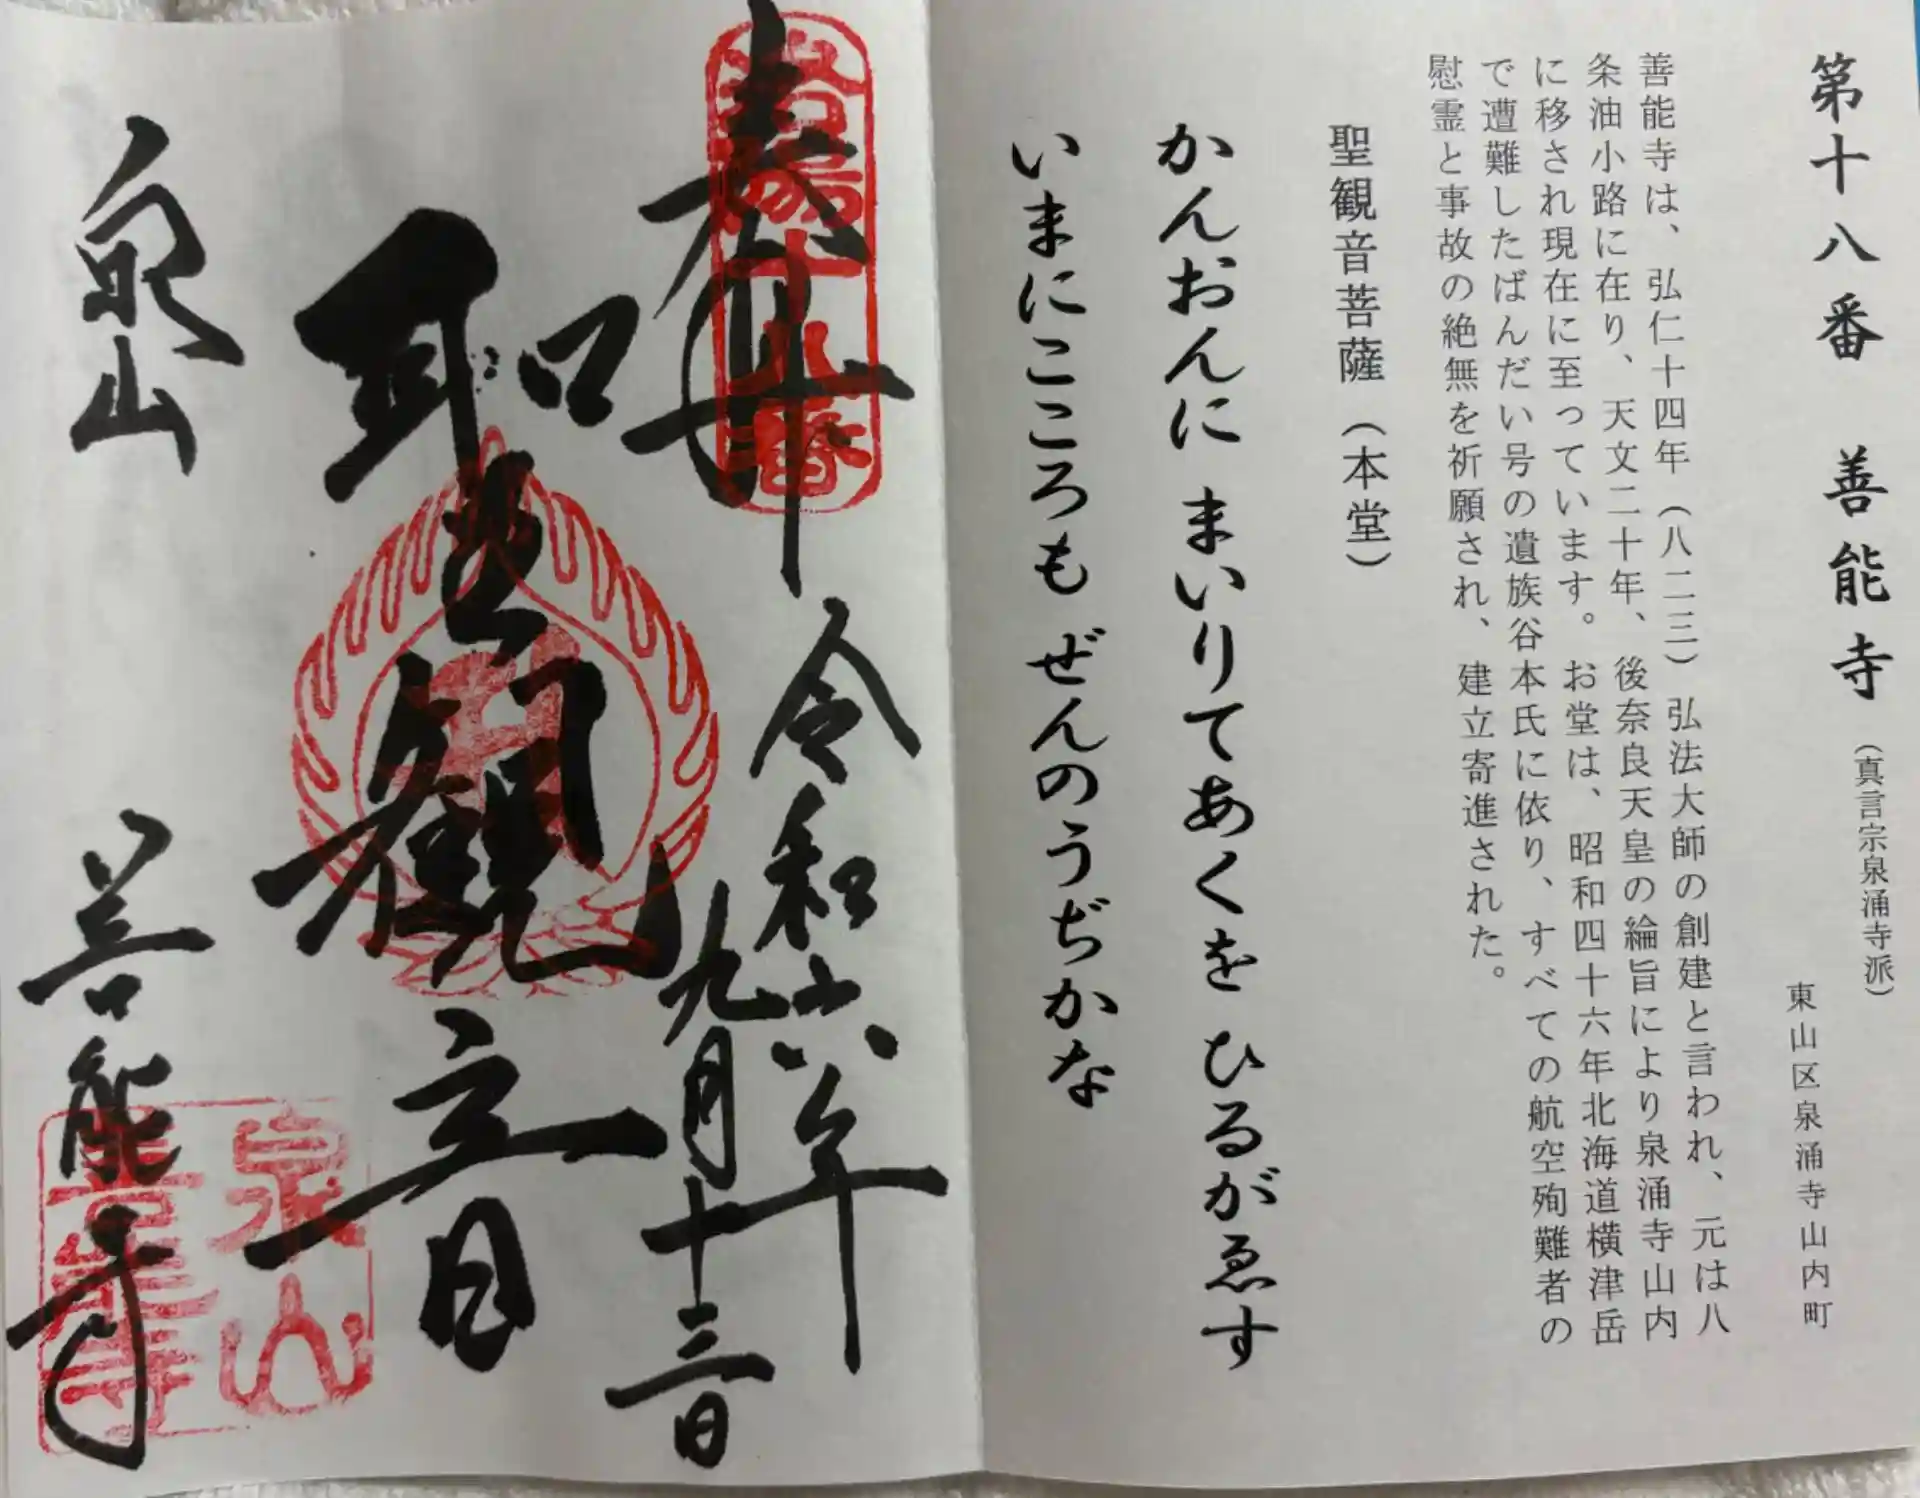 第十八番 善能寺 (真言宗泉涌寺派)
東山区泉涌寺山内町
善能寺は、弘仁十四年(八二三)弘法大師の創建と言われ、元は八
条油小路に在り、天文二十年、後奈良天皇の綸旨により泉涌寺山内
に移され現在に至っています。お堂は、昭和四十六年北海道横津岳
で遭難したばんだい号の遺族谷本氏に依り、すべての航空殉難者の
慰霊と事故の絶無を祈願され、建立寄進された。
聖観音菩薩(本堂)
かんおんに まいりてあくを ひるがゑす
いまにこころも ぜんのうぢかな
奉拝
洛陽十八番
令和六年
九月十三日
聖観音
泉山
善能寺
泉山
善能寺